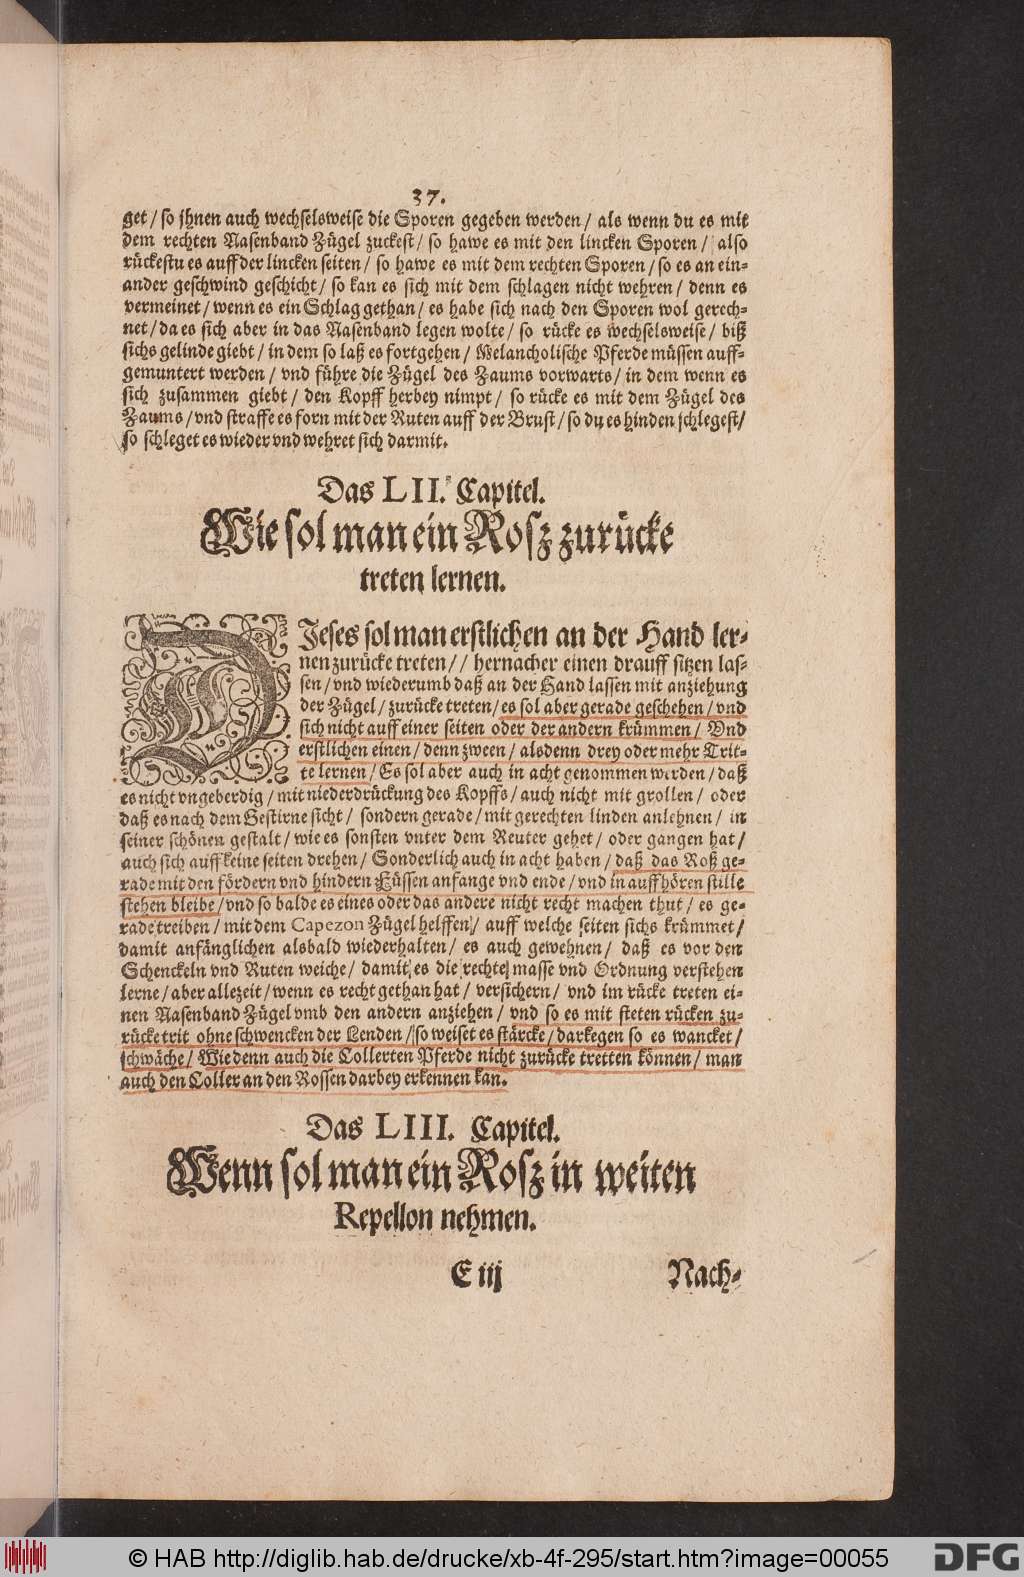 37.
get / so jhnen auch wechselsweise die Sporen gegeben werden / als wenn du es mit
dem rechten Nasenband Zügel zuckest / so hawe es mit den lincken Sporen / also
rückestu es auff der lincken seiten / so hawe es mit dem rechten Sporen / so es an ein-
ander geschwind geschicht / so kan es sich mit dem schlagen nicht wehren / denn es
vermeinet / wenn es ein Schlag gethan / es habe sich nach den Sporen wol gerech-
net / da es sich aber in das Nasenband legen wolte / so rücke es wechselsweise / biß
sichs gelinde giebt / in dem so laß es fortgehen / Melancholische Pferde müssen auff-
gemuntert werden / vnd führe die Zügel des Zaums vorwarts / in dem wenn es
sich zusammen giebt / den Kopff herbey nimpt / so rücke es mit dem Zügel des
Zaums / vnd straffe es forn mit der Ruten auff der Brust / so du es hinden schlegest /
so schleget es wieder vnd wehret sich darmit.
Das LII. Capitel.
Wie sol man ein Rosz zurücke
treten lernen.
DJeses sol man erstlichen an der Hand ler-
nen zurücke treten / / hernacher einen drauff sitzen las-
sen / vnd wiederumb daß an der Hand lassen mit anziehung
der Zügel / zurücke treten / es sol aber gerade geschehen / vnd
sich nicht auff einer seiten oder der andern krümmen / Vnd
erstlichen einen / denn zween / alsdenn drey oder mehr Trit-
te lernen / Es sol aber auch in acht genommen werden / daß
es nicht vngeberdig / mit niederdrückung des Kopffs / auch nicht mit grollen / oder
daß es nach dem Gestirne sicht / sondern gerade / mit gerechten linden anlehnen / in
seiner schönen gestalt / wie es sonsten vnter dem Reuter gehet / oder gangen hat /
auch sich auff keine seiten drehen / Sonderlich auch in acht haben / daß das Roß ge-
rade mit den fördern vnd hindern Füssen anfange vnd ende / vnd in auffhören stille
stehen bleibe / vnd so balde es eines oder das andere nicht recht machen thut / es ge-
rade treiben / mit dem Capezon Zügel helffen / auff welche seiten sichs krümmet /
damit anfänglichen alsbald wiederhalten / es auch gewehnen / daß es vor den
Schenckeln vnd Ruten weiche / damit es die rechte masse vnd Ordnung verstehen
lerne / aber allezeit / wenn es recht gethan hat / versichern / vnd im rücke treten ei-
nen Nasenband Zügel vmb den andern anziehen / vnd so es mit steten rücken zu-
rücke trit ohne schwencken der Lenden / so weiset es stärcke / darkegen so es wancket /
schwäche / Wie denn auch die Collerten Pferde nicht zurücke tretten können / man
auch den Coller an den Rossen darbey erkennen kan.
Das LIII. Capitel.
Wenn sol man ein Rosz in weiten
Repellon nehmen.
E iij Nach-
© HAB http://diglib.hab.de/drucke/xb-4f-295/start.htm?image=00055
DFG